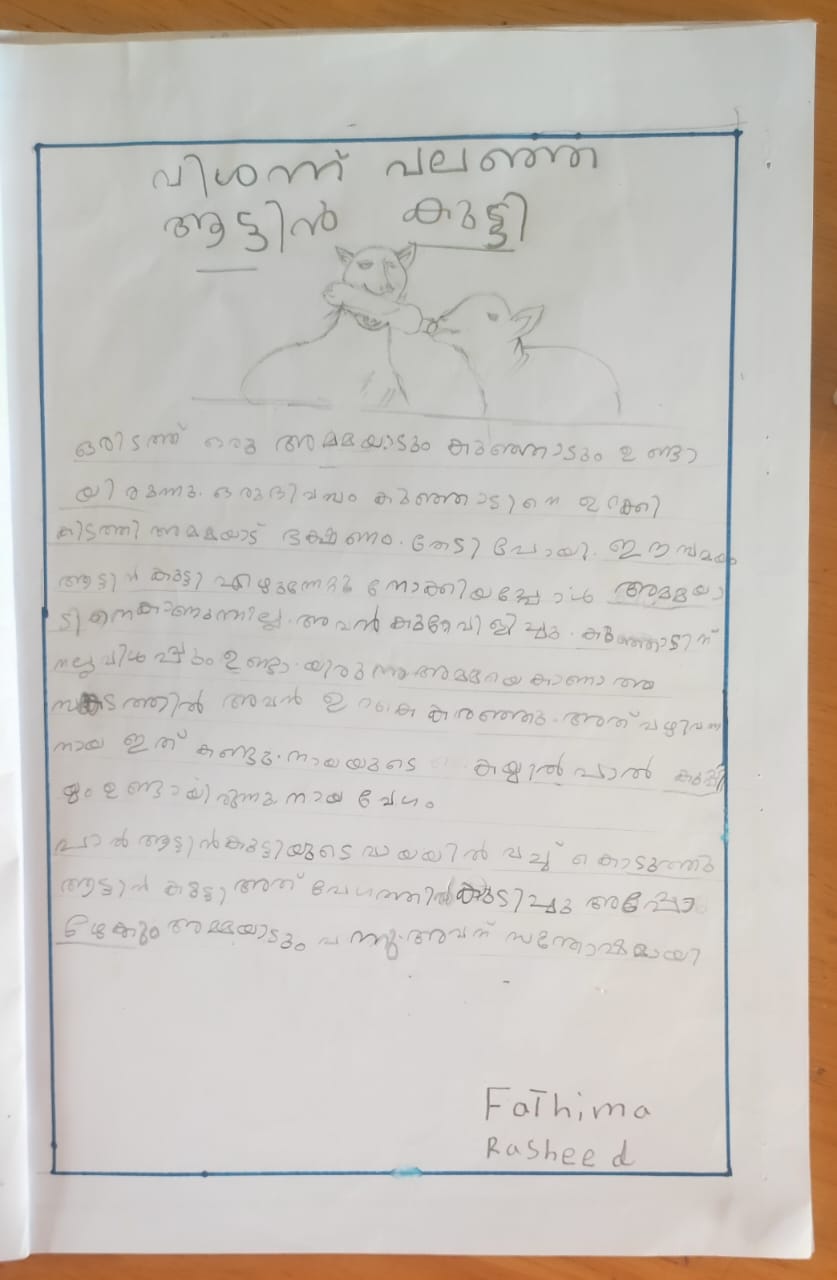 വിശന്ന് വലഞ്ഞ
ആട്ടിൻ കുട്ടി
ഒരിടത്ത് ഒരു അമ്മയാടും കുഞ്ഞാടും ഉണ്ടാ
യിരുന്നു. ഒരുദിവസം കുഞ്ഞാടിനെ ഉറക്കി
കിടത്തി അമ്മയാട് ഭക്ഷണം. തേടി പോയി. ഈസമയം
ആട്ടിൻ കുട്ടി എഴുന്നേറ്റു നോക്കിയപ്പോൾ അമ്മയാ
ടിനെകാണുന്നില്ല. അവൻ കുറേവിളിച്ചു. കുഞ്ഞാടിന്
നല്ല വിശപ്പും ഉണ്ടാ.യിരുന്നു അമ്മയെ കാണാത്ത
സങ്കടത്തിൽ അവൻ ഉറക്കെ കരഞ്ഞു. അത് വഴിവന്ന
നായ ഇത് കണ്ടു. നായയുടെ കയ്യിൽ പാൽ കുപ്പി
യും ഉണ്ടായിരുന്നു നായ വേഗം
പാൽ ആട്ടിൻകുട്ടിയുടെ വായയിൽ വച്ച് കൊടുത്തു
ആട്ടിൻ കുട്ടി അത് വേഗത്തിൽ കുടിച്ചു അപ്പോ
ഴേക്കും അമ്മയാടും വന്നു. അവന് സന്തോഷമായി
FaThima
Rasheed